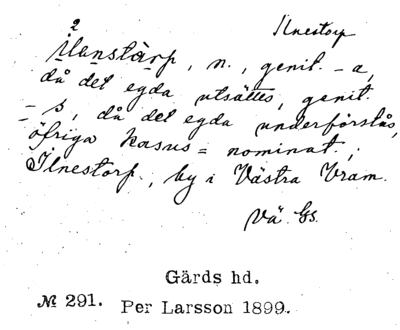 Ilnestorp
2
Ilanstàrp, n., genit. -a,
då det egda utsättes, genit.
- s, då det egda underförstås,
öfriga kasus = nominat.;
Ilnestorp, by i Västra Vram.
Vä. Gs.
Gärds hd.
№ 291. Per Larsson 1899.